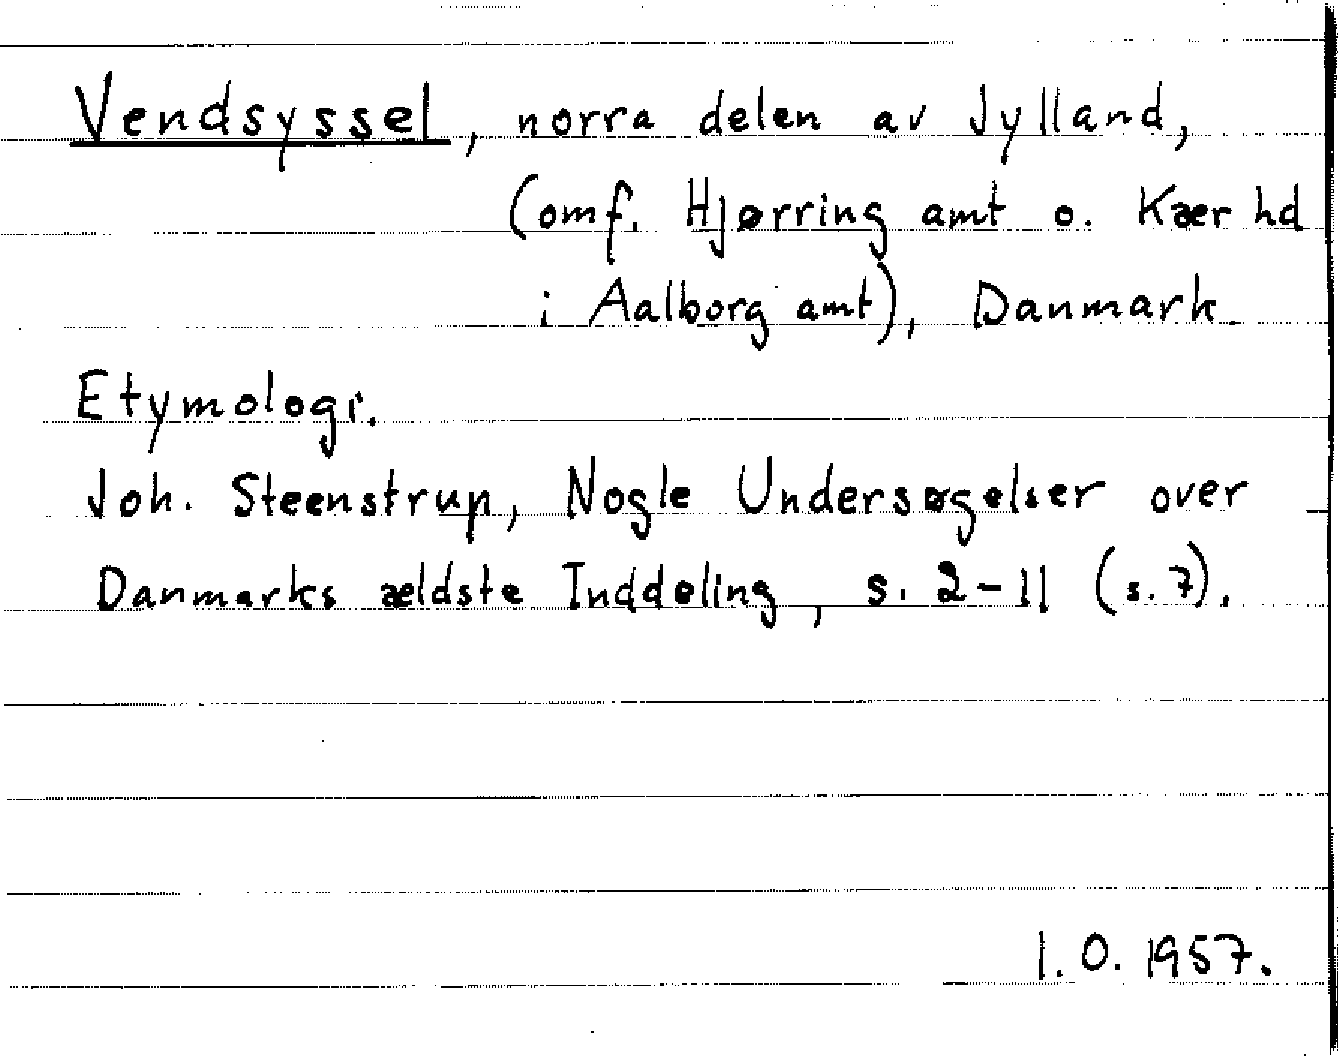 Vendsyssel, norra delen av Jylland,
(omf. Hjørring amt o. Kær hd
i Aalborg amt), Danmark.
Etymologi.
Joh. Steenstrup, Nogle Undersøgelser over
Danmarks ældste Inddeling, s. 2-11 (s. 7).
I. O. 1957.